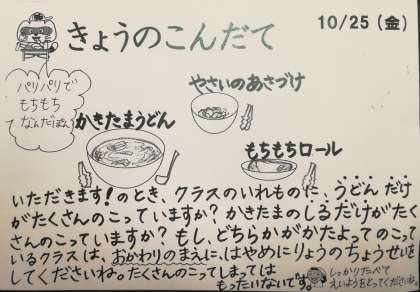 きょうのこんだて
10/25(金)
パリパリで
もちもち
なんだぽん
やさいのあさづけ
かきたまうどん
もちもちロール
いただきます!のとき、クラスのいれものに、うどんだけ
がたくさんのこっていますか?かきたまのしるだけがたく
さんのこっていますか?もし、どちらかがかたよってのこって
いるクラスは、おかわりのまえに、はやめにりょうのちょうせいを
してくださいね。たくさんのこってしまっては
もったいないです。
しっかりたべて
えいようをとってくださいね